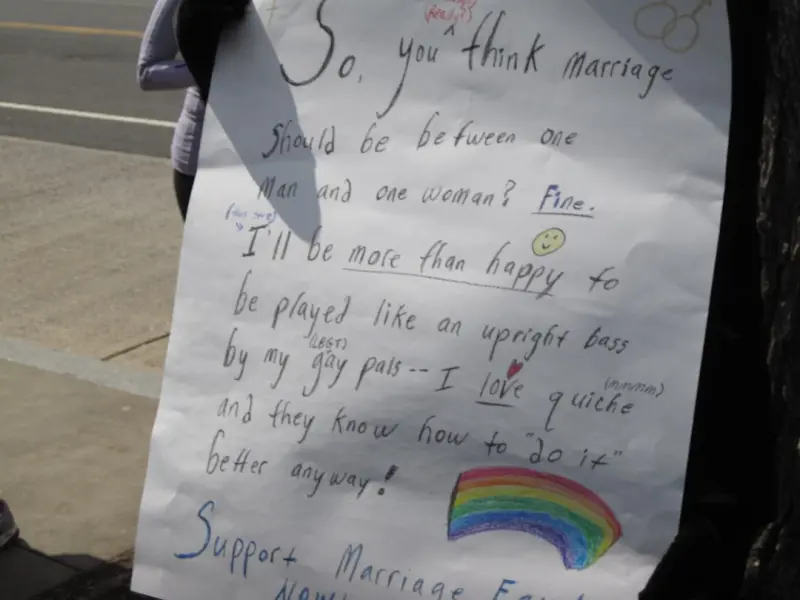 (Really?)
So, you ^ think marriage
should be between one
man and one woman? Fine.
I'll be more than happy to
be played like an upright bass
(LBGT)
by my gay pals-- I love quiche (mmmm)
and they know how to "do it"
better anyway!
Support Marriage
Now!